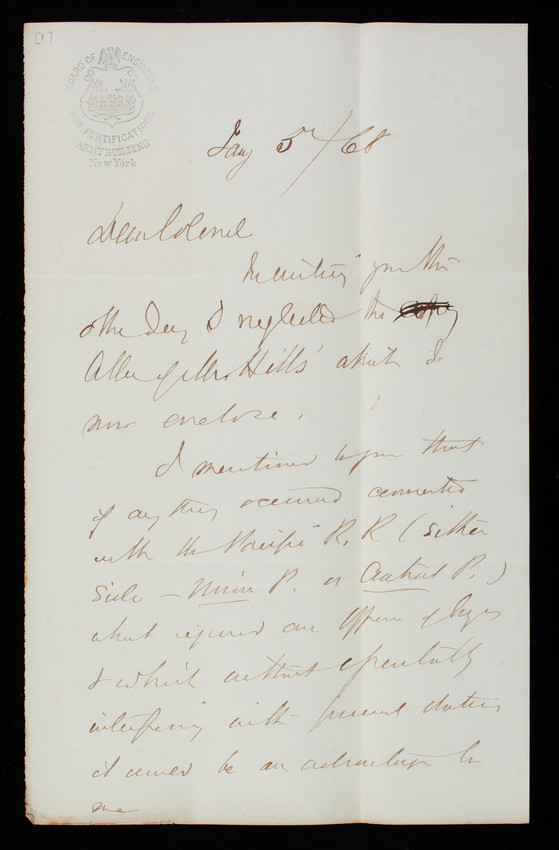 [1]
BOARD OF ENGINEERS
FOR FORTIFICATIONS
ARMY BUILDING
New York
Jany 5th/68
Dear Colonel
In writing you the
other day I neglected the
of Mr Hills' which I
now enclose.
I mentioned to you that
if any thing occurred connected
with the Pacific R.R (either
side - Union P. or Central P.)
which required an officer of Engrs
& which without essentially
interfering with present duties
it would be an advantage to
me